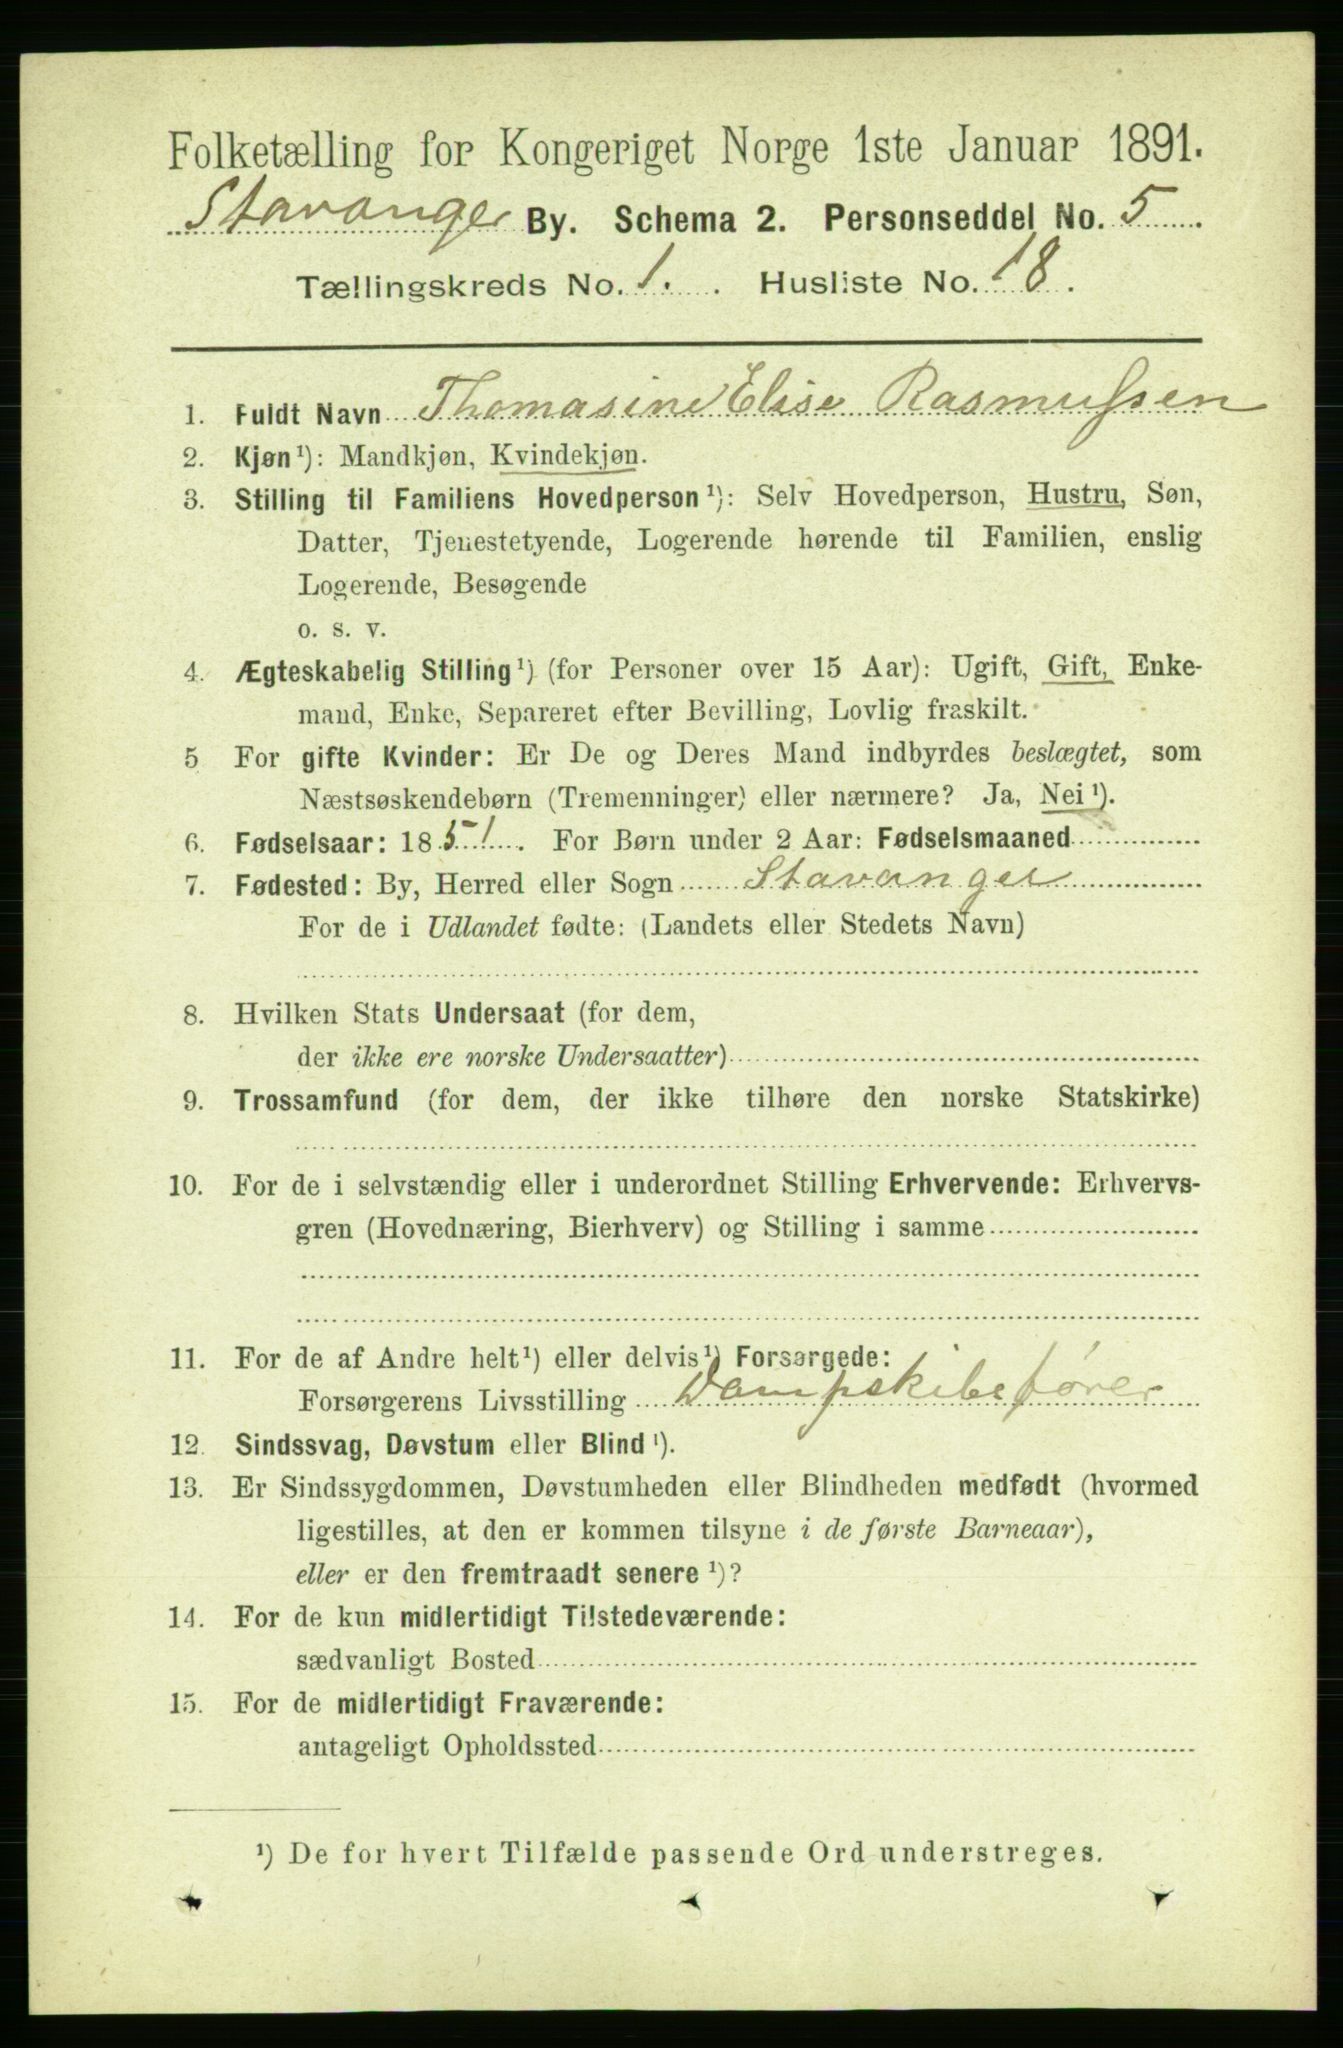 Folketælling for Kongeriget Norge 1ste Januar 1891.
Stavanger By. Schema 2. Personseddel No. 5
Tællingskreds No. 1. Husliste No. 18.
1. Fuldt Navn Thomasine Elise Rasmussen
2. Kjøn¹): Mandkjøn, Kvindekjøn.
3. Stilling til Familiens Hovedperson¹): Selv Hovedperson, Hustru, Søn,
Datter, Tjenestetyende, Logerende hørende til Familien, enslig
Logerende, Besøgende
o. s. v.
4. Ægteskabelig Stilling¹) (for Personer over 15 Aar): Ugift, Gift, Enke-
mand, Enke, Separeret efter Bevilling, Lovlig fraskilt.
5 For gifte Kvinder: Er De og Deres Mand indbyrdes beslægtet, som
Næstsøskendebørn (Tremenninger) eller nærmere? Ja, Nei¹).
6. Fødselsaar: 1851. For Børn under 2 Aar: Fødselsmaaned
7. Fødested: By, Herred eller Sogn Stavanger
For de i Udlandet fødte: (Landets eller Stedets Navn)
8. Hvilken Stats Undersaat (for dem,
der ikke ere norske Undersaatter)
9. Trossamfund (for dem, der ikke tilhøre den norske Statskirke)
10. For de i selvstændig eller i underordnet Stilling Erhvervende: Erhvervs-
gren (Hovednæring, Bierhverv) og Stilling i samme
11. For de af Andre helt¹) eller delvis¹) Forsørgede:
Forsørgerens Livsstilling Dampskibsfører
12. Sindssvag, Døvstum eller Blind¹).
13. Er Sindssygdommen, Døvstumheden eller Blindheden medfødt (hvormed
ligestilles, at den er kommen tilsyne i de første Barneaar),
eller er den fremtraadt senere¹)?
14. For de kun midlertidigt Tilstedeværende:
sædvanligt Bosted
15. For de midlertidigt Fraværende:
antageligt Opholdssted
¹) De for hvert Tilfælde passende Ord understreges.